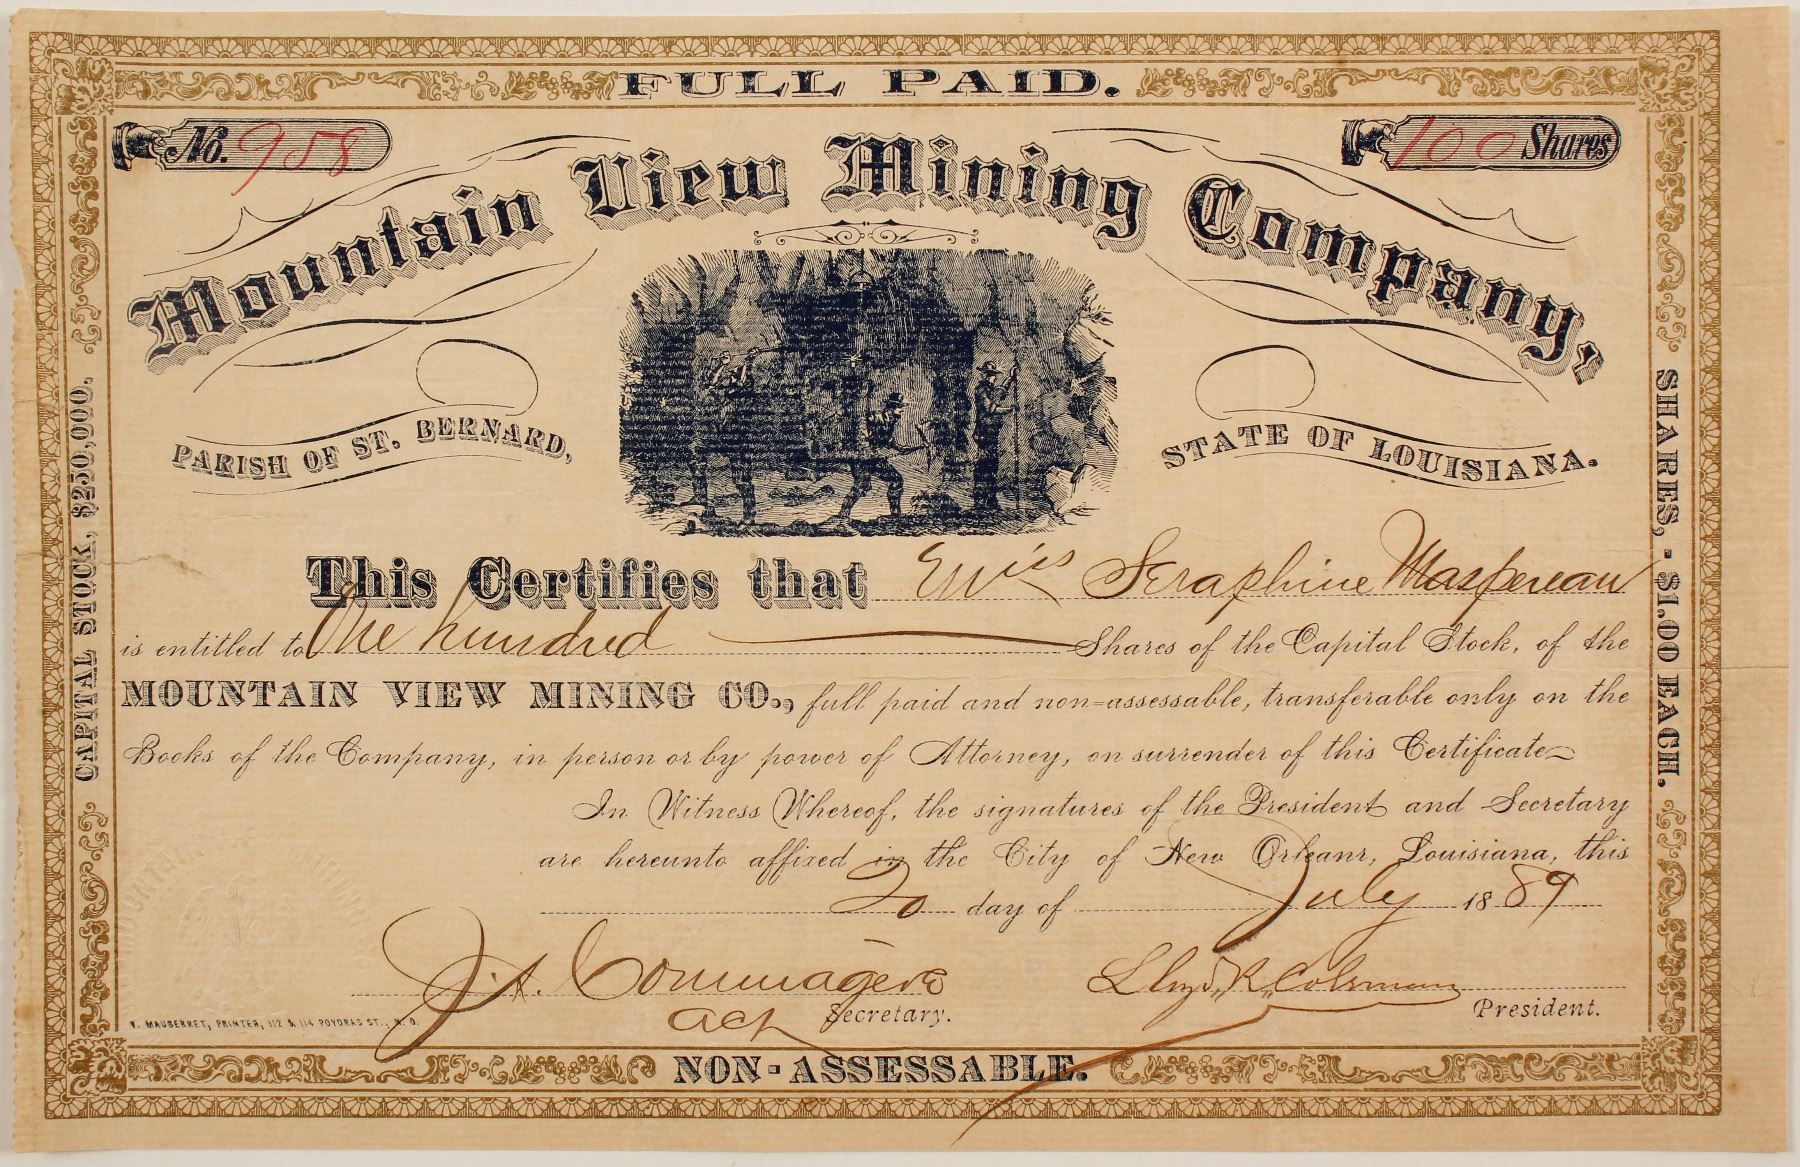 FULL PAID.
No. 958
100 Shares
Mountain View Mining Company,
PARISH OF ST. BERNARD,
STATE OF LOUISIANA.
CAPITAL STOCK, $250,000.
SHARES, - $1.00 EACH.
This Certifies that Miss Seraphine Maspereau
is entitled to One hundred Shares of the Capital Stock, of the
MOUNTAIN VIEW MINING CO., full paid and non=assessable, transferable only on the
Books of the Company, in person or by power of Attorney, on surrender of this Certificate
In Witness Whereof, the signatures of the President and Secretary
are hereunto affixed in the City of New Orleans, Louisiana, this
20 day of July 1889
J. A. Commagere
act Secretary.
Lloyd R. Coleman
President.
V. MAUBERRET, PRINTER, 112 & 114 POYDRAS ST., N. O.
NON-ASSESSABLE.